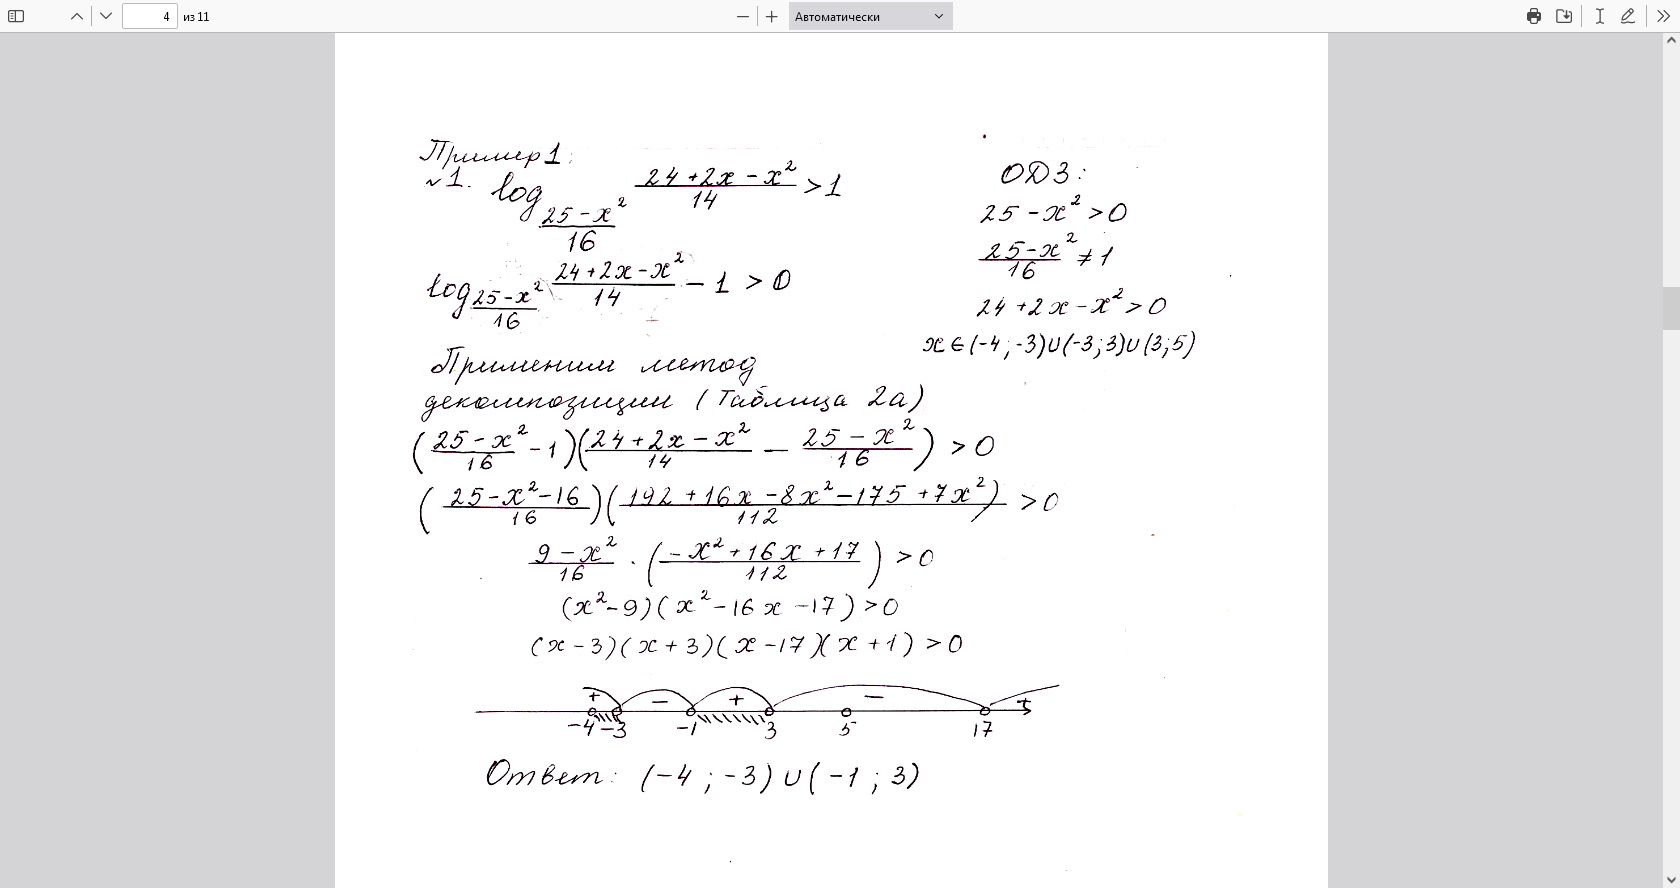 4 из 11 Автоматически
Пример 1:
№1. log_{(25-x²)/16} (24+2x-x²)/14 > 1
log_{(25-x²)/16} (24+2x-x²)/14 - 1 > 0
ОДЗ:
25-x² > 0
(25-x²)/16 ≠ 1
24+2x-x² > 0
x ∈ (-4; -3)∪(-3; 3)∪(3; 5)
Применим метод
декомпозиции (Таблица 2а)
((25-x²)/16 - 1)((24+2x-x²)/14 - (25-x²)/16) > 0
((25-x²-16)/16)((192+16x-8x²-175+7x²)/112) > 0
(9-x²)/16 · ((-x²+16x+17)/112) > 0
(x²-9)(x²-16x-17) > 0
(x-3)(x+3)(x-17)(x+1) > 0
+ - + - +
-4 -3 -1 3 5 17
Ответ: (-4; -3)∪(-1; 3)